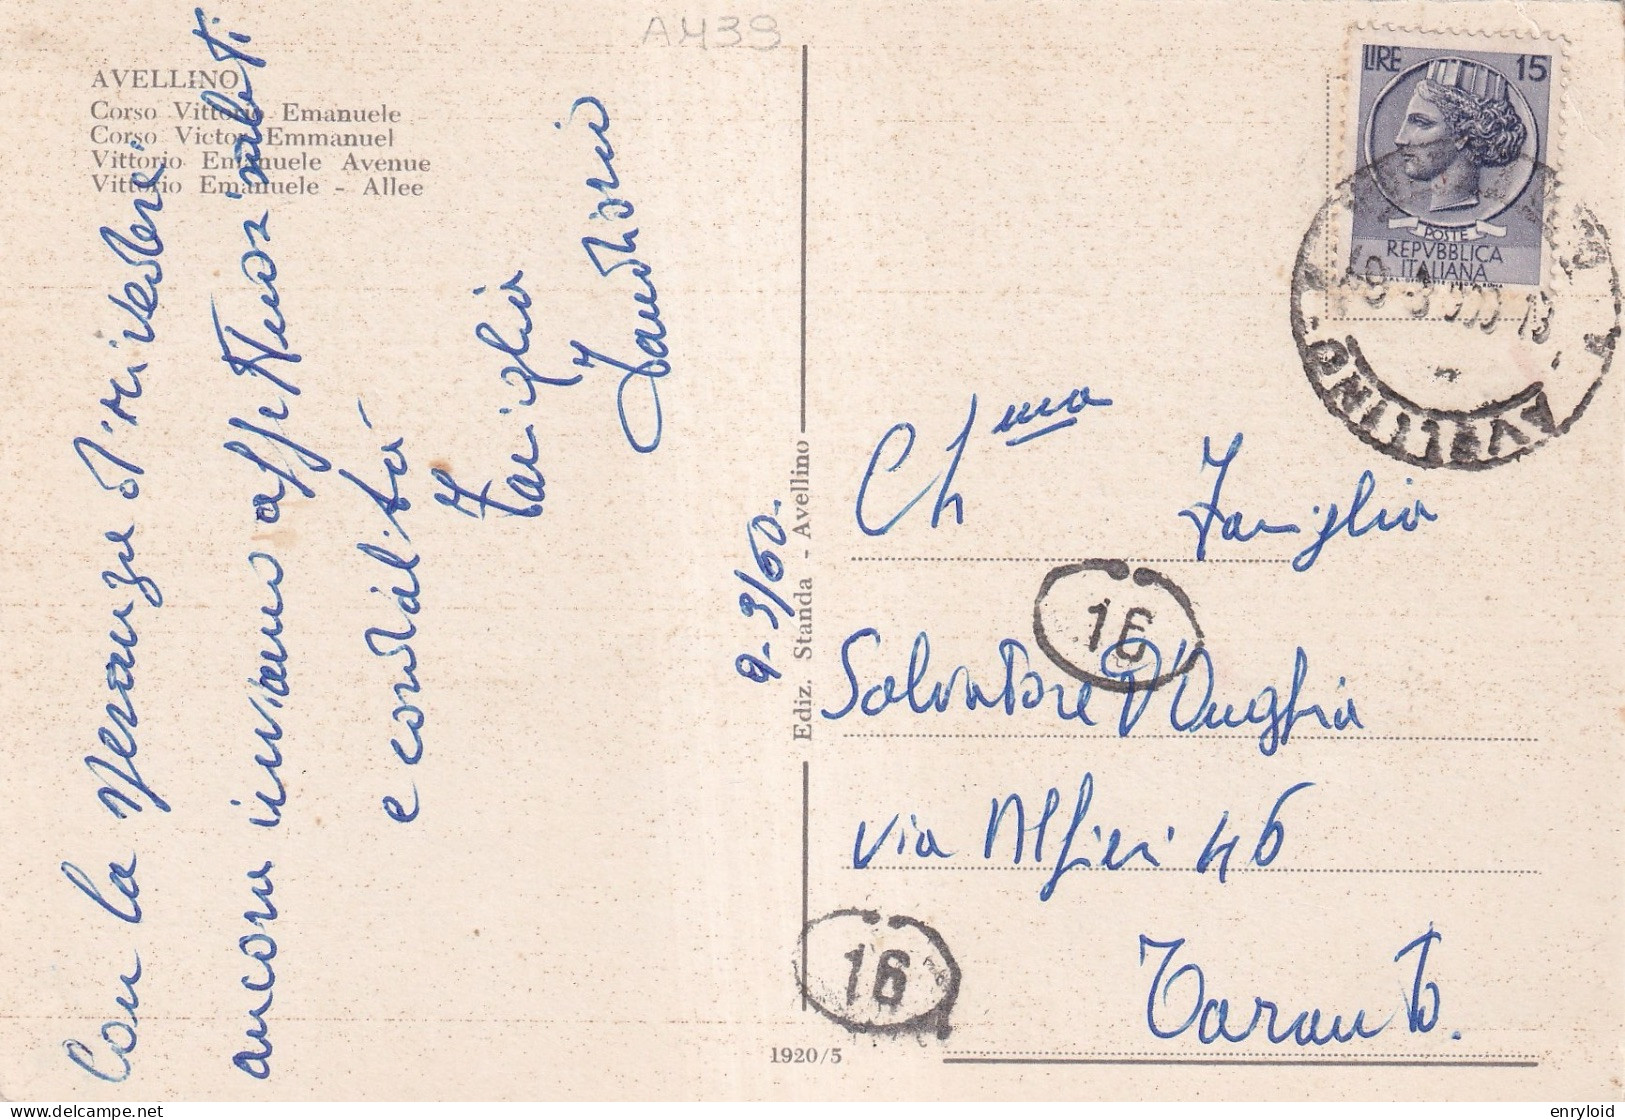 A439
AVELLINO
Corso Vittorio Emanuele
Corso Victor Emmanuel
Vittorio Emanuele Avenue
Vittorio Emanuele - Allee
Con la speranza di rivederVi
ancora inviamo affettuosi saluti
e cordialità
Famiglia
9-3/60.
Ediz. Standa - Avellino
1920/5
LIRE 15
POSTE
REPVBBLICA
ITALIANA
AVELLINO
Ch ma Famiglia
16
Salvatore D'Vughia
via Alfieri 46
16
Taranto.
delcampe.net
enryloid